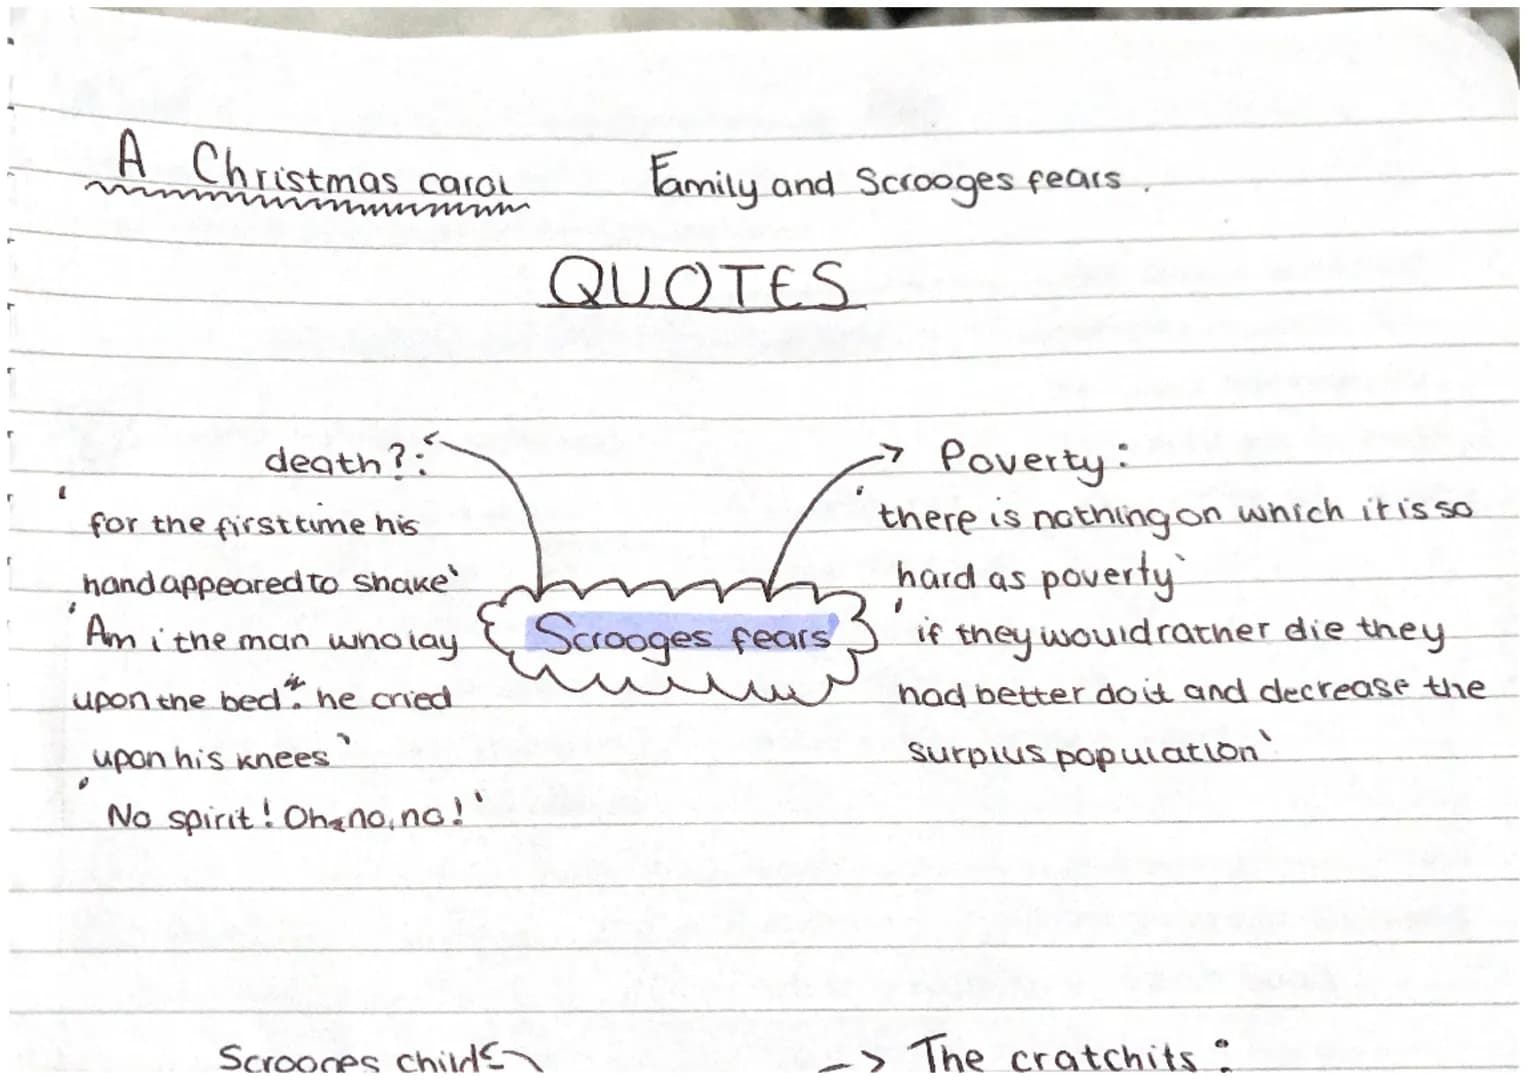 A Christmas carol
Family and Scrooges fears.
QUOTES
death?:
'for the first time his
hand appeared to shake'
'Am i the man who lay
upon the bed". he cried
upon his knees'
'No spirit! Oh no, no!'
Scrooges fears
Poverty:
'there is nothing on which it is so
hard as poverty'
'if they would rather die they
had better do it and decrease the
surplus population'
Scrooges child
The cratchits: